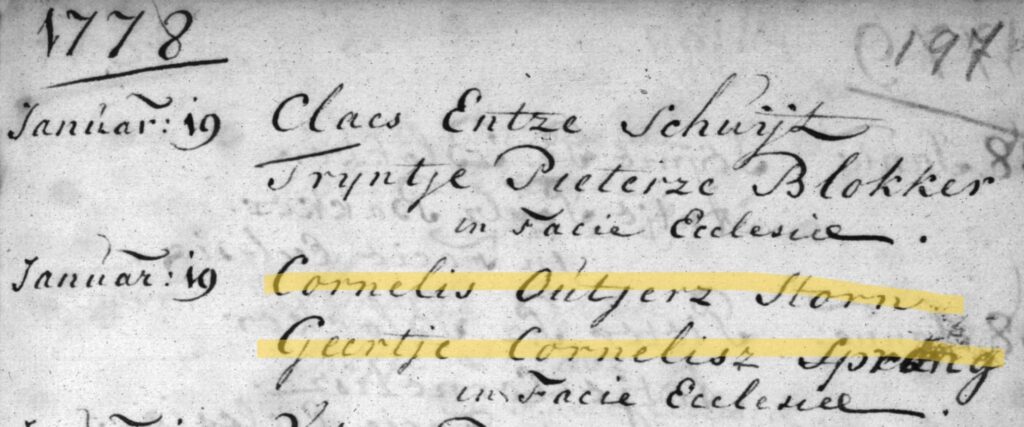 1778
197
Januar: 19 Claes Entze Schuijt
Tryntje Pieterze Blokker
in Facie Ecclesiæ.
Januar: 19 Cornelis Outjerz Storn
Geertje Cornelisz
in Facie Ecclesiæ.